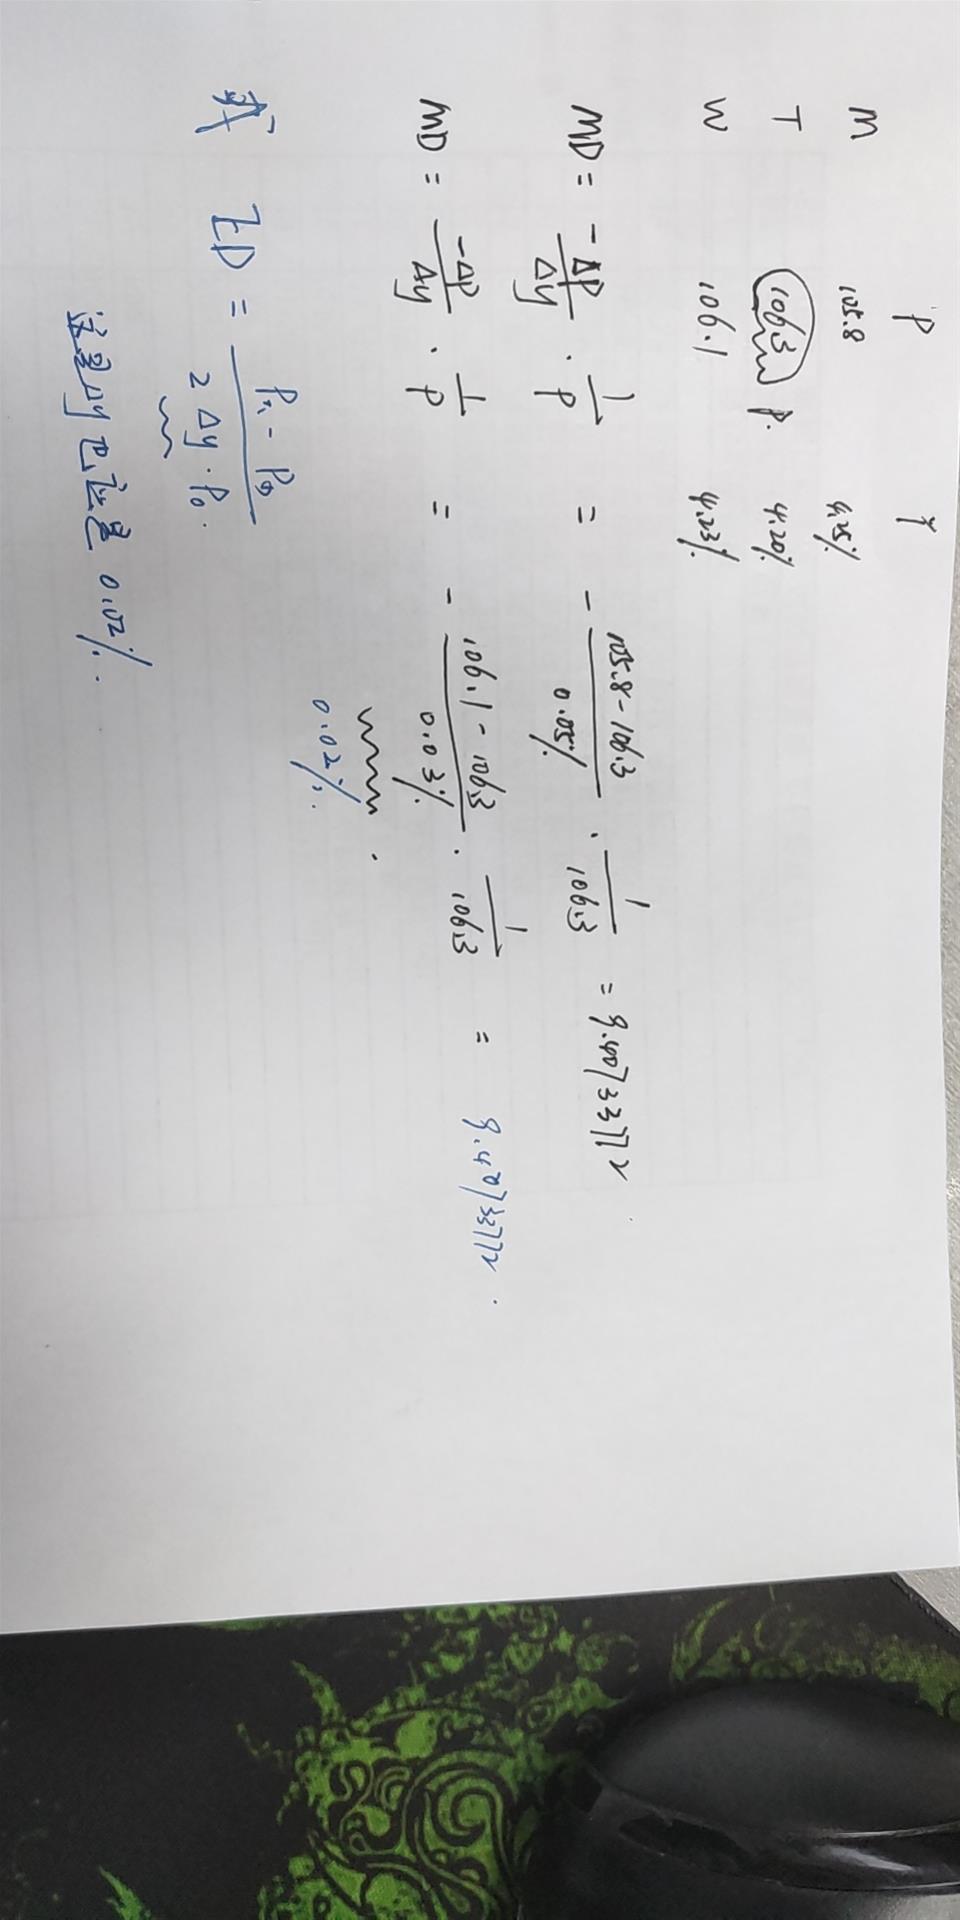 P Y
M 105.8 4.25%
T 106.3 P. 4.20%
W 106.1 4.23%
MD = -ΔP/Δy · 1/P = - (105.8-106.3)/0.05% · 1/106.3 = 9.40733772
MD = -ΔP/Δy · 1/P = - (106.1-106.3)/0.03% · 1/106.3 = 9.40733772.
0.02%.
或 ED = (P₁ - P₀)/(2Δy·P₀.)
这里Δy也应是 0.02%.